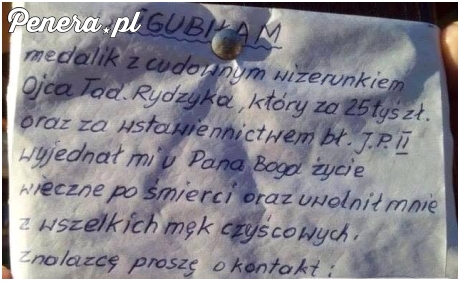 Penera.pl
ZGUBIŁAM
medalik z cudownym wizerunkiem
Ojca Tad. Rydzyka, który za 25 tyś zł.
oraz za wstawiennictwem bł. J.P. II
wyjednał mi u Pana Boga życie
wieczne po śmierci oraz uwolnił mnie
z wszelkich mąk czyścowych.
Znalazcę proszę o kontakt: